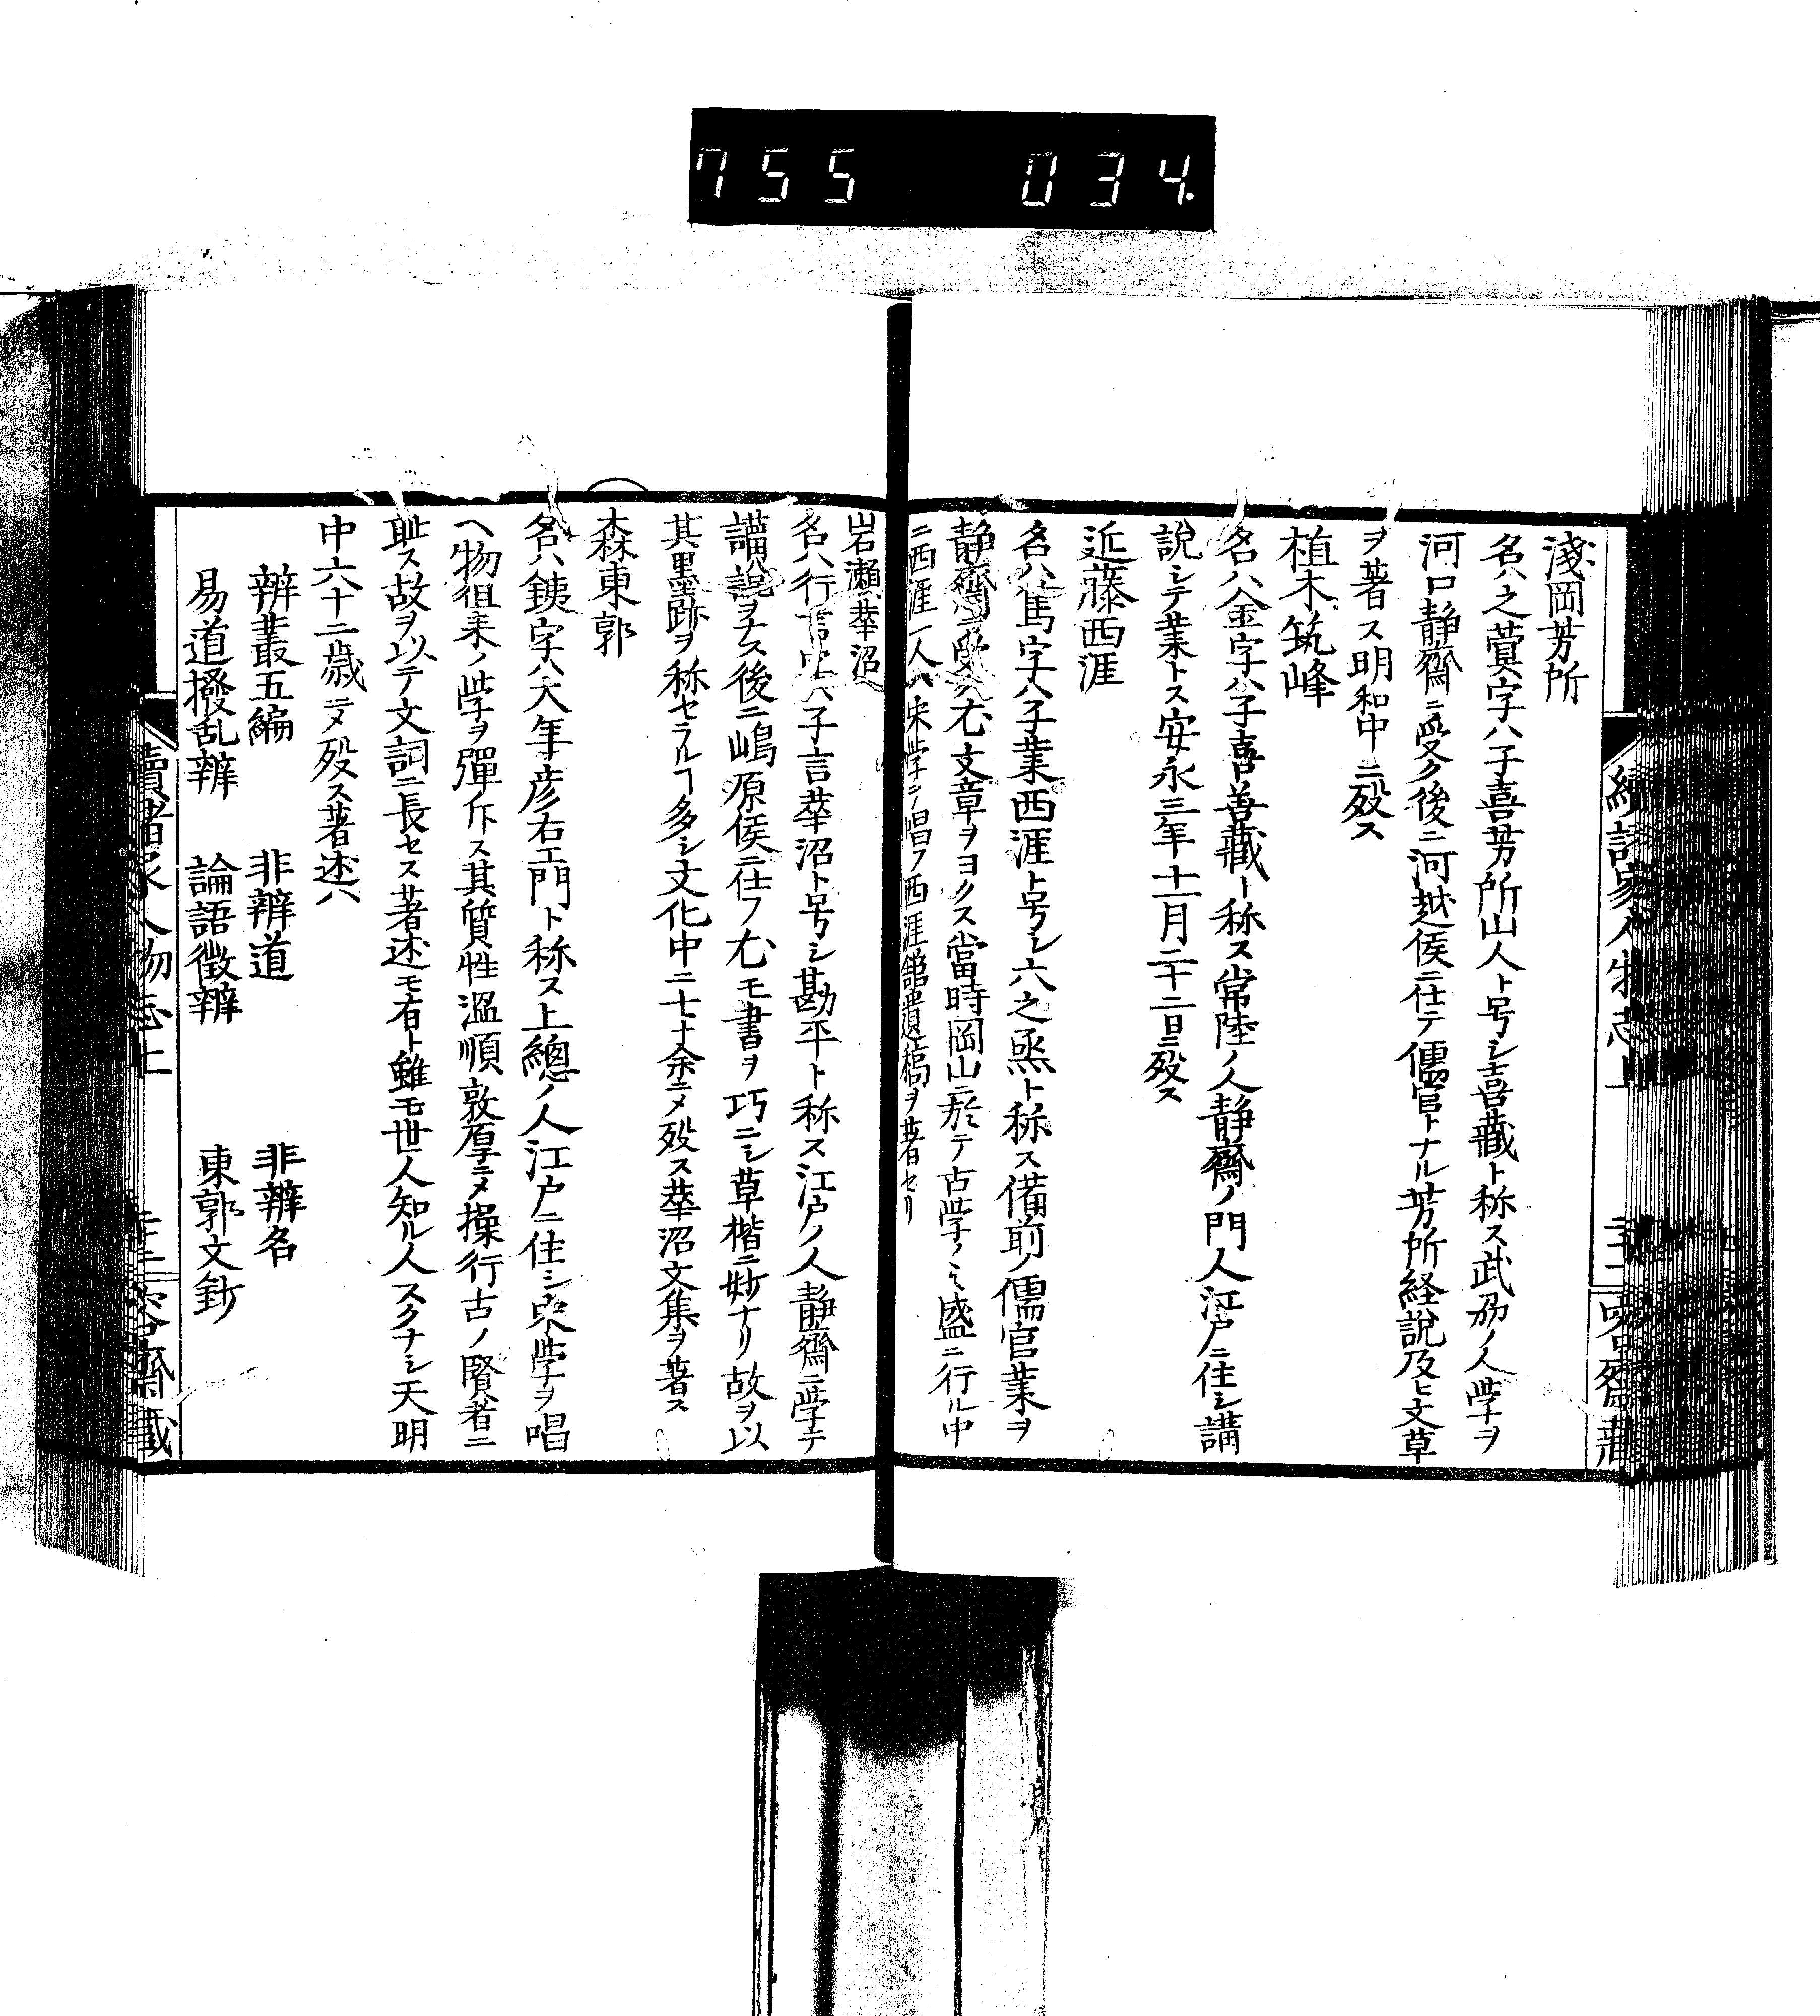 755 034.
淺岡芳所
名ハ之蓂字ハ子喜芳所山人ト号シ喜藏ト称ス武刕ノ人学ヲ
河口静齋ニ受ク後ニ河越侯ニ仕テ儒官トナル芳所経説及ヒ文草
ヲ著ス明和中ニ殁ス
植木筑峰
名ハ八金字ハ子喜善藏ト称ス常陸ノ人静齋ノ門人江戸ニ住シ講
說シテ業トス安永三年十一月二十二日ニ殁ス
近藤西涯
名ハ篤字ハ子業西涯ト号シ六之丞ト称ス備前ノ儒官業ヲ
静齋ニ受ク尤文章ヲヨクス當時岡山ニ於テ古学ノミ盛ニ行ル中
ニ西涯一人ハ朱学ヲ唱フ西涯舘遺稿ヲ著セリ
岩瀬華沼
名ハ行言字ハ子言華沼ト号シ勘平ト称ス江戸ノ人静齋ニ学テ
講說ヲナス後ニ嶋原侯ニ仕フ尤モ書ヲ巧ニシ草楷ニ妙ナリ故ヲ以
其墨跡ヲ称セラルヿ多シ文化中ニ七十余ニメ殁ス華沼文集ヲ著ス
森東郭
名ハ銕字ハ大年彦右エ門ト称ス上總ノ人江戸ニ住シ宋学ヲ唱
ヘ物徂徠ノ学ヲ彈斥ス其質性溫順敦厚ニメ操行古ノ賢者ニ
耻ス故ヲ以テ文詞ニ長セス著述モ有ト雖モ世人知ル人スクナシ天明
中六十二歳ニメ殁ス著述ハ
辨叢五編 非辨道 非辨名
易道撥乱辨 論語徴辨 東郭文鈔
續諸家人物志上